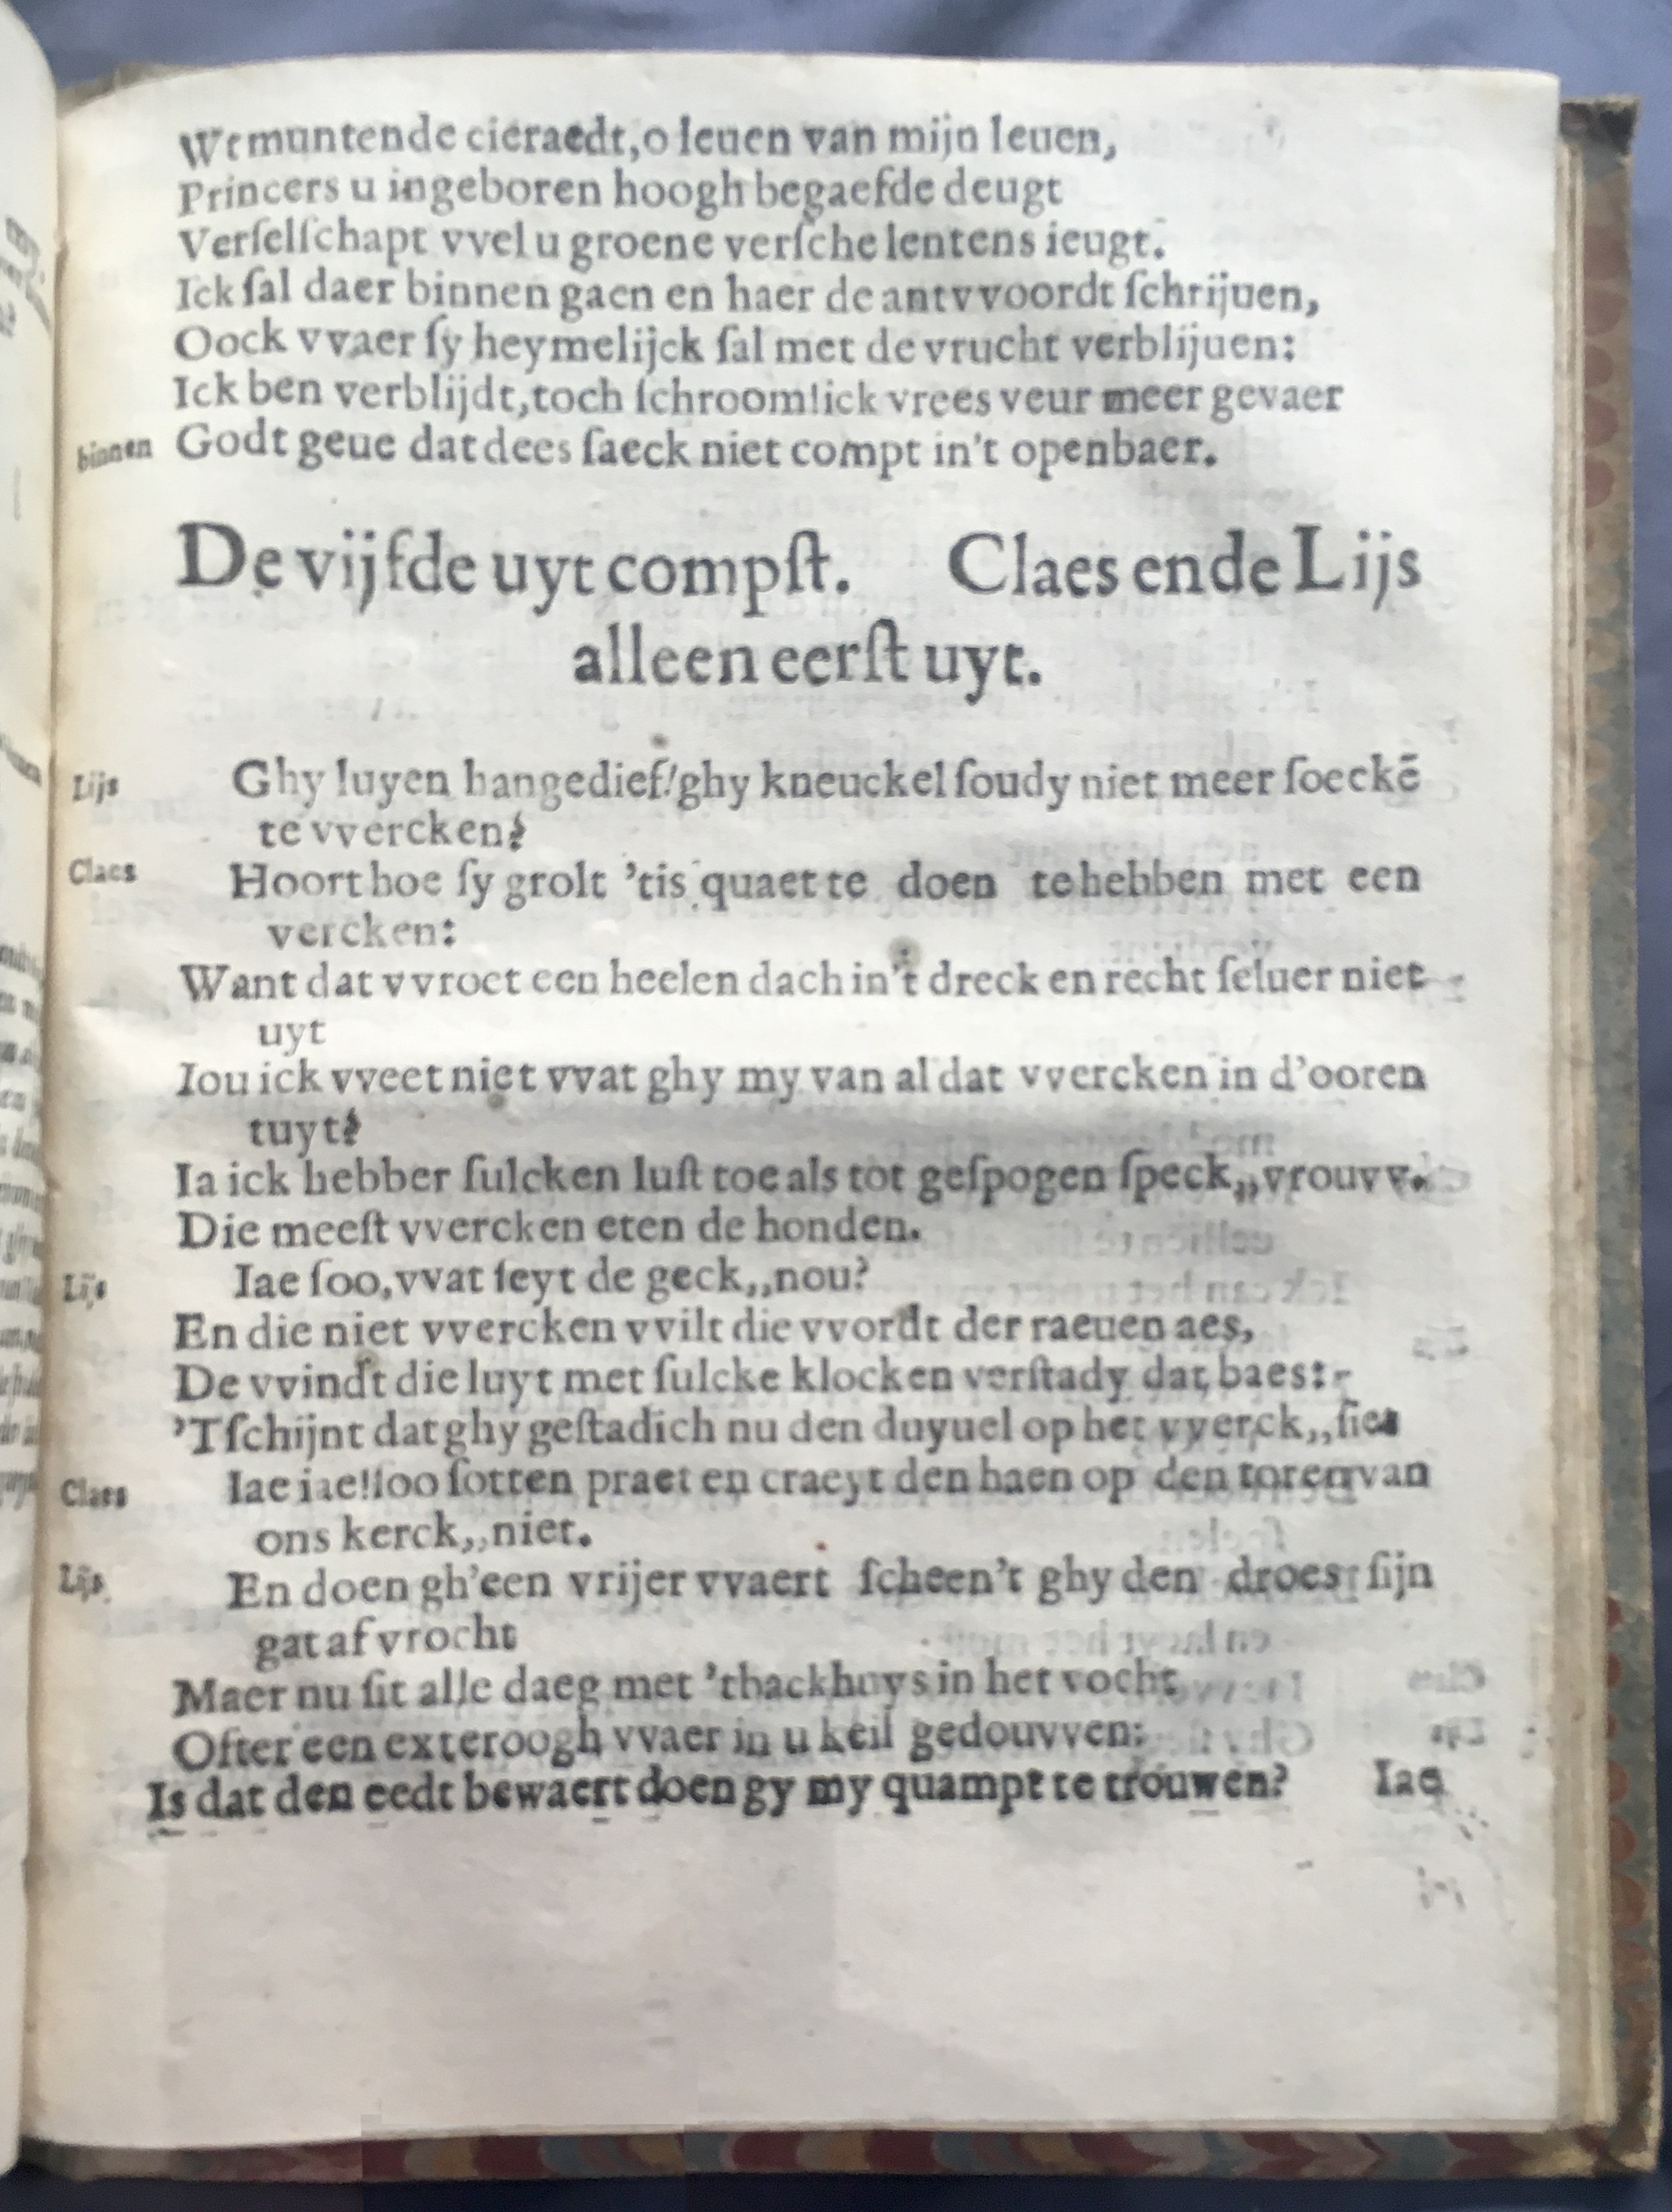 Wtmuntende cieraedt,o leuen van mijn leuen,
Princers u ingeboren hoogh begaefde deugt
Verſelſchapt vvel u groene verſche lentens ieugt.
Ick ſal daer binnen gaen en haer de antvvoordt ſchrijuen,
Oock vvaer ſy heymelijck ſal met de vrucht verblijuen:
Ick ben verblijdt,toch ſchroomlick vrees veur meer gevaer
binnen Godt geue dat dees ſaeck niet compt in't openbaer.
De vijfde uyt compſt. Claes ende Lijs
alleen eerſt uyt.
Lijs Ghy luyen hangedief!ghy kneuckel ſoudy niet meer ſoeckē
te vvercken?
Claes Hoort hoe ſy grolt 'tis quaet te doen te hebben met een
vercken:
Want dat vvroct een heelen dach in't dreck en recht ſeluer niet
uyt
Iou ick vveet niet vvat ghy my van al dat vvercken in d'ooren
tuyt?
Ia ick hebber ſulcken luſt toe als tot geſpogen ſpeck,,vrouvv.
Die meeſt vvercken eten de honden.
Lijs Iae ſoo,vvat ſeyt de geck,,nou?
En die niet vvercken vvilt die vvordt der raeuen aes,
De vvindt die luyt met ſulcke klocken verſtady dat baes:
'Tſchijnt dat ghy geſtadich nu den duyuel op het vverck,,ſiet
Claes Iae iae!ſoo ſotten praet en craeyt den haen op den toren van
ons kerck,,niet.
Lijs En doen gh'een vrijer vvaert ſcheen't ghy den droes ſijn
gat af vrocht
Maer nu ſit alle daeg met 'tbackhuys in het vocht
Ofter een exteroogh vvaer in u keil gedouvven:
Is dat den eedt bewaert doen gy my quampt te trouwen? Iae